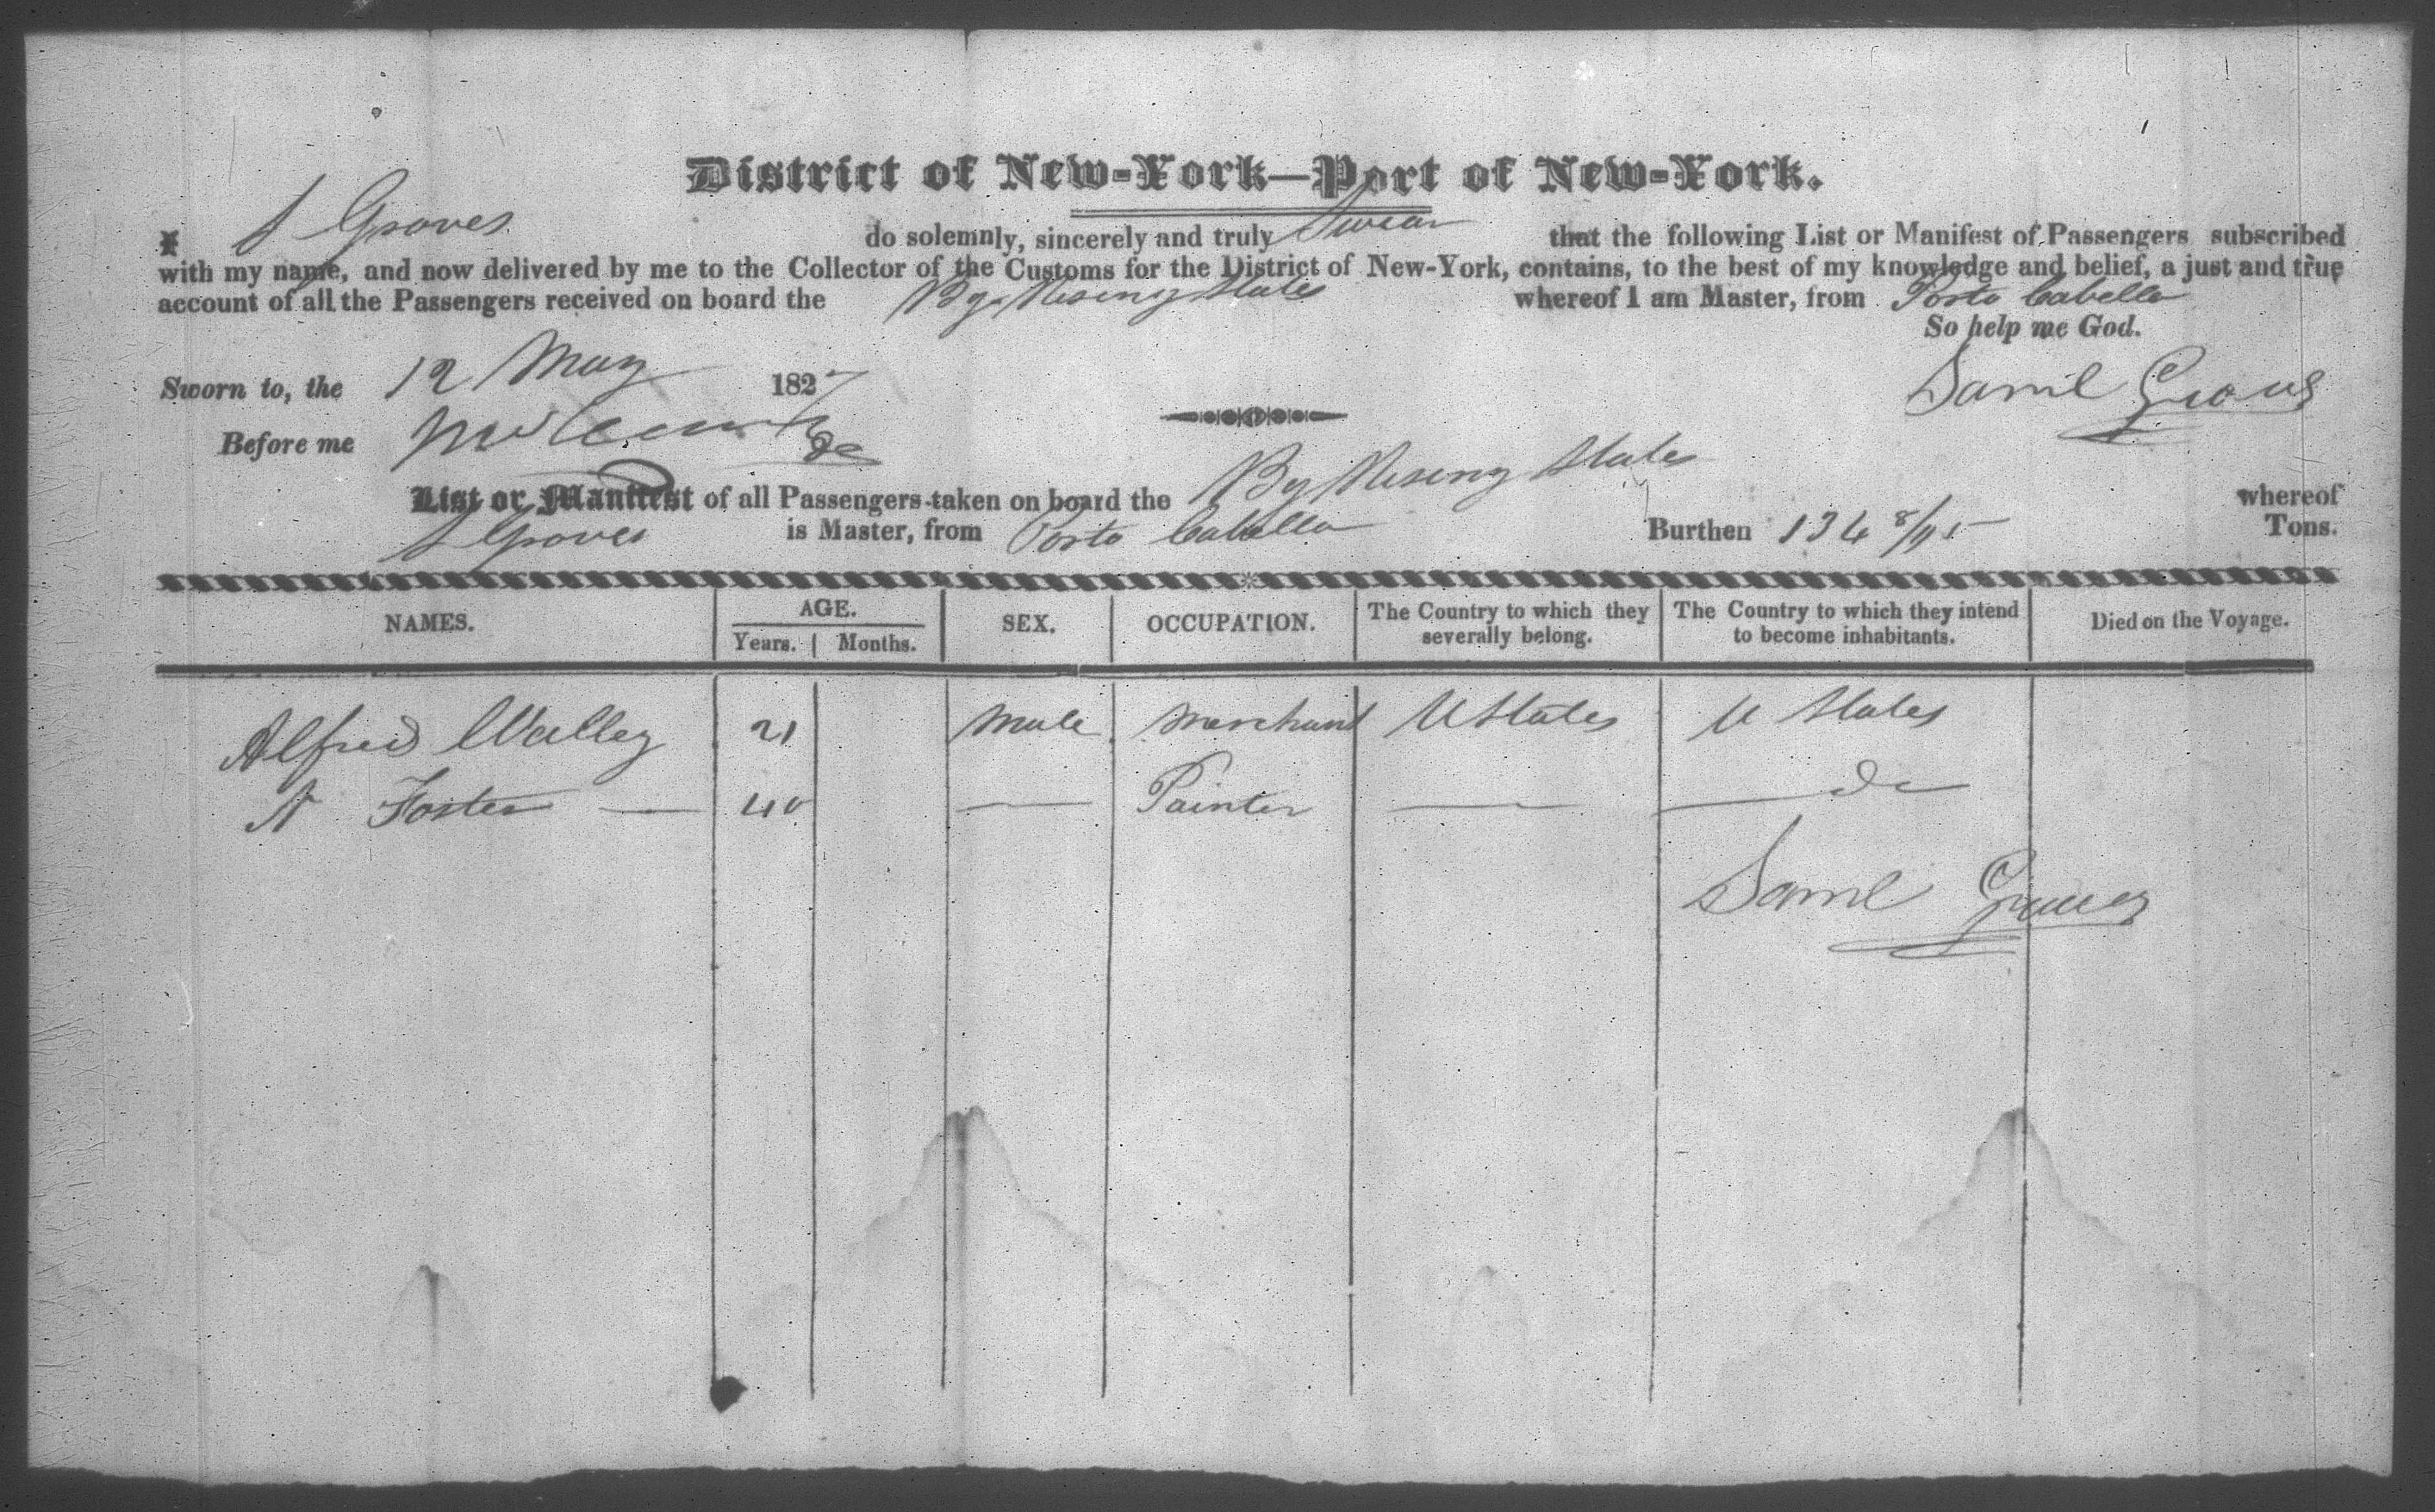 District of New-York—Port of New-York.
I S Groves do solemnly, sincerely and truly Swear that the following List or Manifest of Passengers subscribed
with my name, and now delivered by me to the Collector of the Customs for the District of New-York, contains, to the best of my knowledge and belief, a just and true
account of all the Passengers received on board the Bg Rising States whereof I am Master, from Porto Cabello
So help me God.
Sworn to, the 12 May 1827
Saml Groves
Before me
List or Manifest of all Passengers taken on board the Bg Rising States whereof
S Groves is Master, from Porto Cabello Burthen 134 8/95 Tons.
NAMES. AGE. SEX. OCCUPATION. The Country to which they severally belong. The Country to which they intend to become inhabitants. Died on the Voyage.
Years. Months.
Alfred Walley 21 Male Merchant U States U States
N Foster — 40 — Painter — — Do
Saml Groves